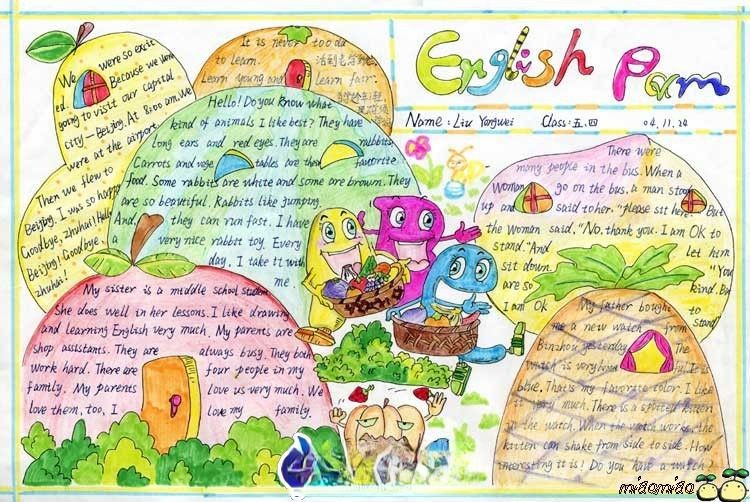 English Pam
Name: Liu Yongwei Class: 五.四 04.11.24
We were so excit
ed. Because we were
going to visit our capital
city - Beijing. At 8:00 am. We
were at the airport.
Then we flew to
Beijing. I was so happy.
Goodbye, zhuhai! Hello
Beijing! Goodbye,
zhuhai!
It is never too old
to learn. 活到老学到老
Learn young and learn fair.
Hello! Do you know what
kind of animals I like best? They have
Long ears and red eyes. They are rabbits.
Carrots and vege tables are their favourite
food. Some rabbits are white and some are brown. They
are so beautiful. Rabbits like jumping.
And, they can run fast. I have
a very nice rabbit toy. Every
day, I take it with
me.
My sister is a middle school student.
She does well in her lessons. I like drawing
and learning English very much. My parents are
shop assistants. They are always busy. They both
work hard. There are four people in my
family. My parents love us very much. We
love them, too. I love my family.
There were
many people in the bus. When a
woman go on the bus, a man stood
up and said to her. "please sit here." But
the woman said, "No, thank you. I am OK to
stand." And let him
sit down. "You
are so kind. But
I am Ok to
stand."
My father bought
me a new watch from
Binzhou yesterday. The
watch is very beautiful. It is
blue. That's my favorite color. I like
it very much. There is a spotted kitten
in the watch. When the watch works, the
kitten can shake from side to side. How
interesting it is! Do you have a watch?
miaomiao